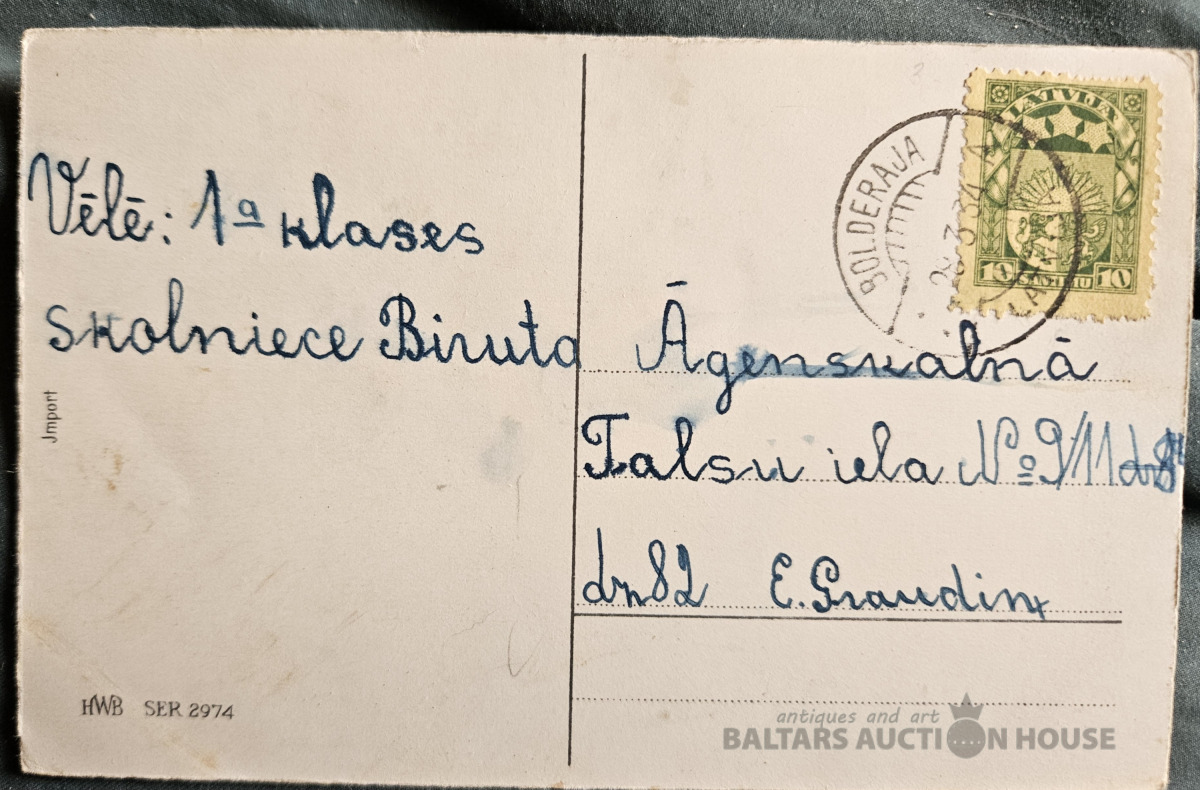 Vēlē: 1ª klases
skolniece Biruta
Āgenskalnā
Talsu iela № 9/11
dz 82 E. Graudin
Jmport
HWB SER 2974
BOLDERAJA
28.3.34 A
LATVIJA
LATVIJA
10 10
antiques and art
BALTARS AUCTION HOUSE